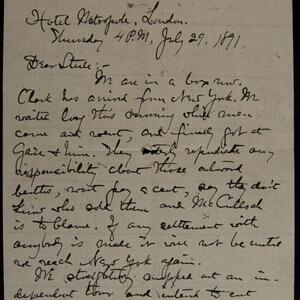 Hotel Metropole, London.
Thursday 4 P.M, July 29, 1891.
Dear Stede:-
We are in a box now.
Clark has arrived from New York. We
waited long this morning while men
came and went, and finally got at
Gaze & him. They repudiate any
responsibility about those outward
berths, won't pay a cent, say they don't
know who sold them and McCulloch
is to blame. If any settlement with
anybody is made it will not be until
we reach New York again.
We straightway mapped out an in-
dependent tour and intend to cut